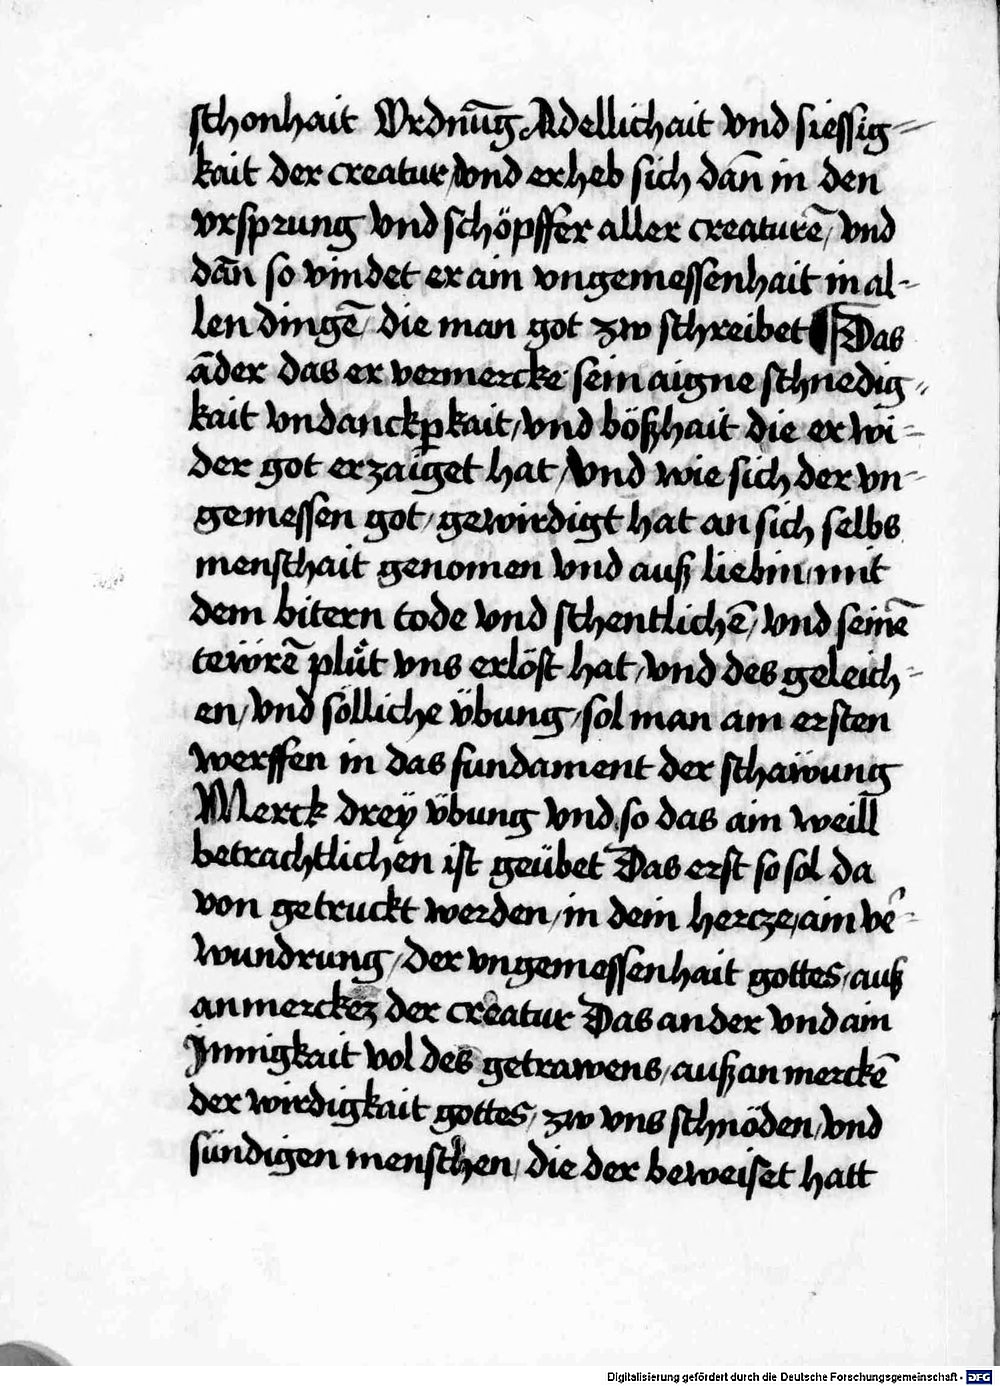 schonhait Ordnūg Adellichait vnd siessig-
kait der creatur/vnd erheb sich dan̄ in den
vrsprung vnd schöpffer aller creaturē/ vnd
dan̄ so vindet er ain vngemessenhait in al-
len dingē/ die man got zw schreibet ¶ Das
āder das er vermercke sein aigne schnedig-
kait vndanckꝑkait/vnd bößhait die er wi-
der got erzaiget hat/vnd wie sich der vn-
gemessen got/gewirdigt hat an sich selbs
menschait genomen vnd auß liebin/mit
dem bitern tode vnd schentlichē/vnd seinē
tewrē plůt vns erlöst hat/vnd des geleich-
en/vnd sölliche übung/sol man am ersten
werffen in das fundament der schawung
Merck dreÿ übung vnd so das ain weill
betrachtlichen ist geübet Das erst so sol da
von getruckt werden/in dein hercze/ain ve᷑-
wundrung/der vngemessenhait gottes/auß
anmerckez der creatur Das ander vnd ain
Jnnigkait vol des getrawens/auß an merckē
der wirdigkait gottes/zw vns schnöden/vnd
sündigen menschen/die der beweiset hatt
Digitalisierung gefördert durch die Deutsche Forschungsgemeinschaft - DFG